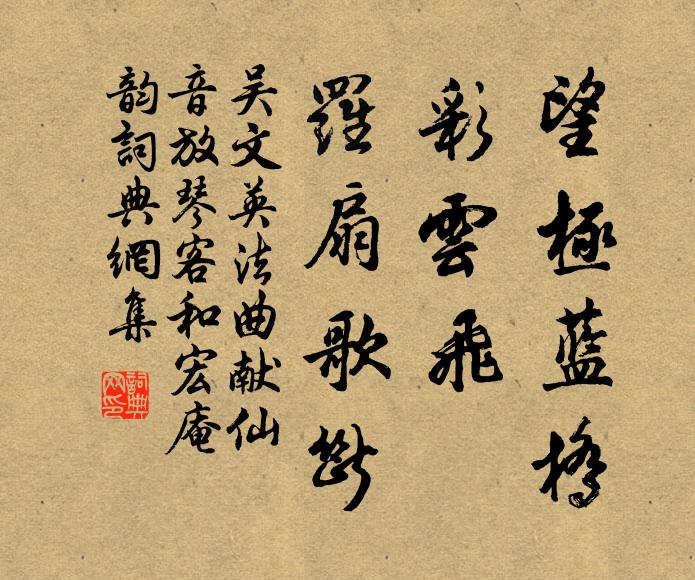 望極藍橋
彩雲飛
羅扇歌斷
吳文英法曲献仙
音放琴客和宏庵
韵詞典網集
詞典網印